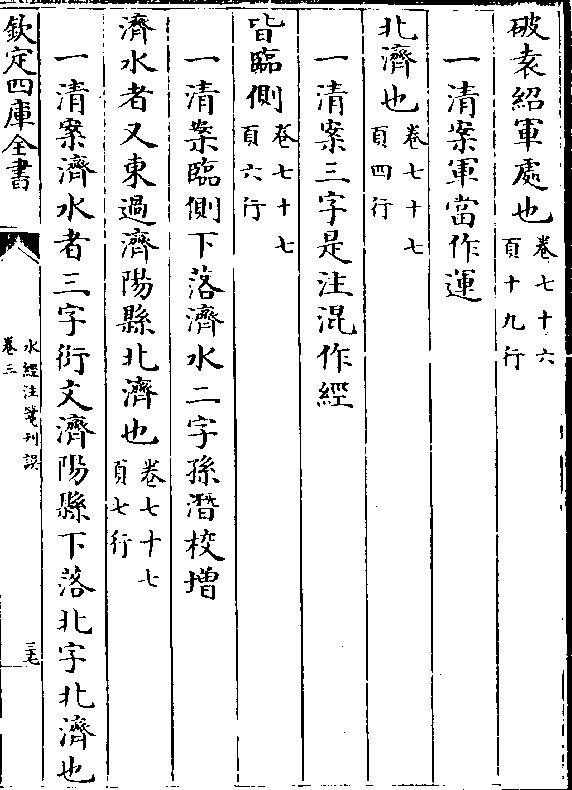 破袁紹軍處也卷七十六頁十九行
一清案軍當作運
北濟也卷七十七頁四行
一清案三字是注混作經
皆臨側卷七十七頁六行
一清案臨側下落濟水二字孫潛校增
濟水者又東過濟陽縣北濟也卷七十七頁七行
一清案濟水者三字衍文濟陽縣下落北字北濟也
欽定四庫全書
水經注箋刊誤
卷三
三七